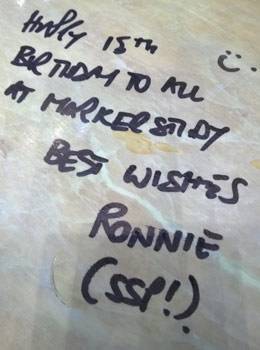 HAPPY 15TH
BIRTHDAY TO ALL
AT MARKERSTUDY
BEST WISHES
RONNIE
(SSP!)